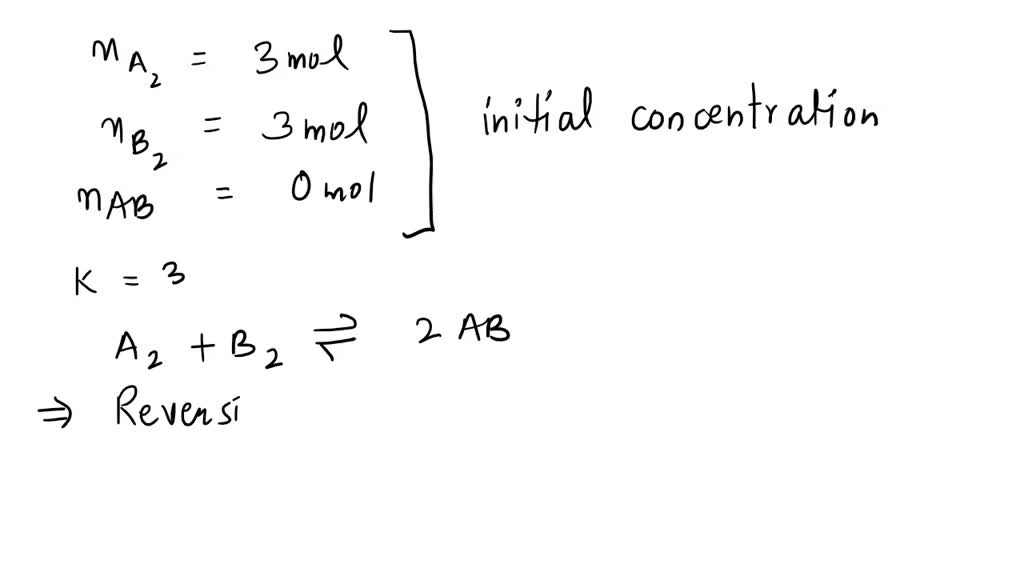 n_{A_2} = 3 mol
n_{B_2} = 3 mol
n_{AB} = 0 mol
initial concentration
K = 3
A_2 + B_2 ⇌ 2 AB
⇒ Reversi